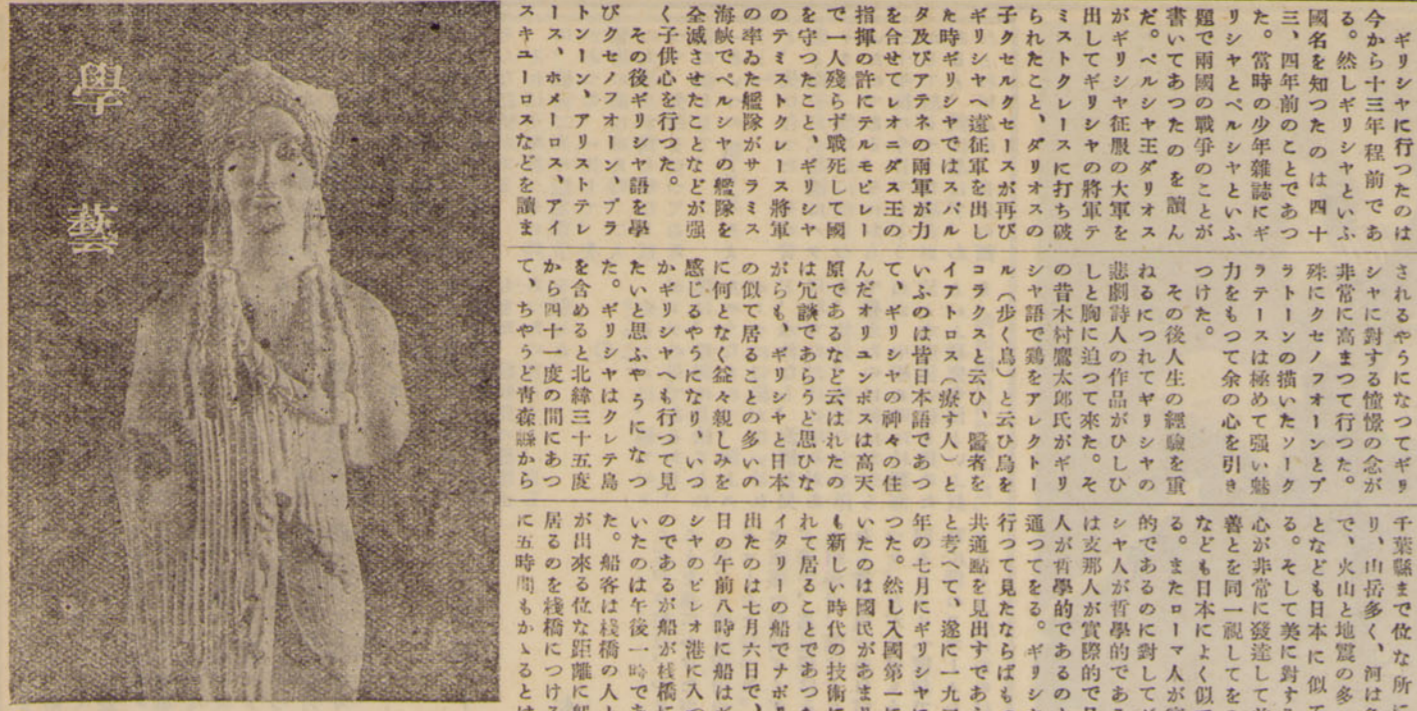 ギリシヤに行つたのは
今から十三年程前であ
る。然しギリシヤといふ
國名を知つたのは四十
三、四年前のことであつ
た。當時の少年雜誌にギ
リシヤとペルシヤといふ
題で兩國の戰爭のことが
書いてあつたのを讀ん
だ。ペルシヤ王ダリオス
がギリシヤ征服の大軍を
出してギリシヤの將軍テ
ミストクレースに打ち破
られたこと、ダリオスの
子クセルクセースが再び
ギリシヤへ遠征軍を出し
た時ギリシヤではスパル
タ及びアテネの兩軍が力
を合せてレオニダス王の
指揮の許にテルモピレー
で一人殘らず戰死して國
を守つたこと、ギリシヤ
のテミストクレース將軍
の率ゐた艦隊がサラミス
海峽でペルシヤの艦隊を
全滅させたことなどが强
く子供心を行つた。
その後ギリシヤ語を學
びクセノフオーン、プラ
トーン、アリストテレ
ース、ホメーロス、アイ
スキユーロスなどを讀ま
されるやうになつてギリ
シヤに對する憧憬の念が
非常に高まつて行つた。
殊にクセノフオーンとプ
ラトーンの描いたソーク
ラテースは極めて强い魅
力をもつて余の心を引き
つけた。
その後人生の經驗を重
ねるにつれてギリシヤの
悲劇詩人の作品がひしひ
しと胸に迫つて來た。そ
の昔木村鷹太郎氏がギリ
シヤ語で鷄をアレクトー
ル（步く鳥）と云ひ烏を
コラクスと云ひ、醫者を
イアトロス（療す人）と
いふのは皆日本語であつ
て、ギリシヤの神々の住
んだオリユンポスは高天
原であるなど云はれたの
は冗談であらうと思ひな
がらも、ギリシヤと日本
の似て居ることの多いの
に何となく益々親しみを
感じるやうになり、いつ
かギリシヤへも行つて見
たいと思ふやうになつ
た。ギリシヤはクレテ島
を含めると北緯三十五度
から四十一度の間にあつ
て、ちやうど靑森縣から
千葉縣まで位な所に
り、山岳多く、河は
で、火山と地震の多
となども日本に似て
る。そして美に對す
心が非常に發達して
善とを同一視してを
なども日本によく似
る。またローマ人が
的であるのに對して
シヤ人が哲學的であ
は支那人が實際的で
人が哲學的であるの
通つてをる。ギリシ
行つて見たならばも
共通點を見出すであ
と考へて、遂に一九
年の七月にギリシヤに
つた。然し入國第一に
いたのは國民があまり
も新しい時代の技術に
れて居ることであつた
イタリーの船でナポリ
出たのは七月六日で、
日の午前八時に船はギ
シヤのピレオ港に入つ
のであるが船が棧橋に
いたのは午後一時であ
た。船客は棧橋の人と
が出來る位な距離に
居るのを棧橋につける
に五時間もかゝるとは
學藝